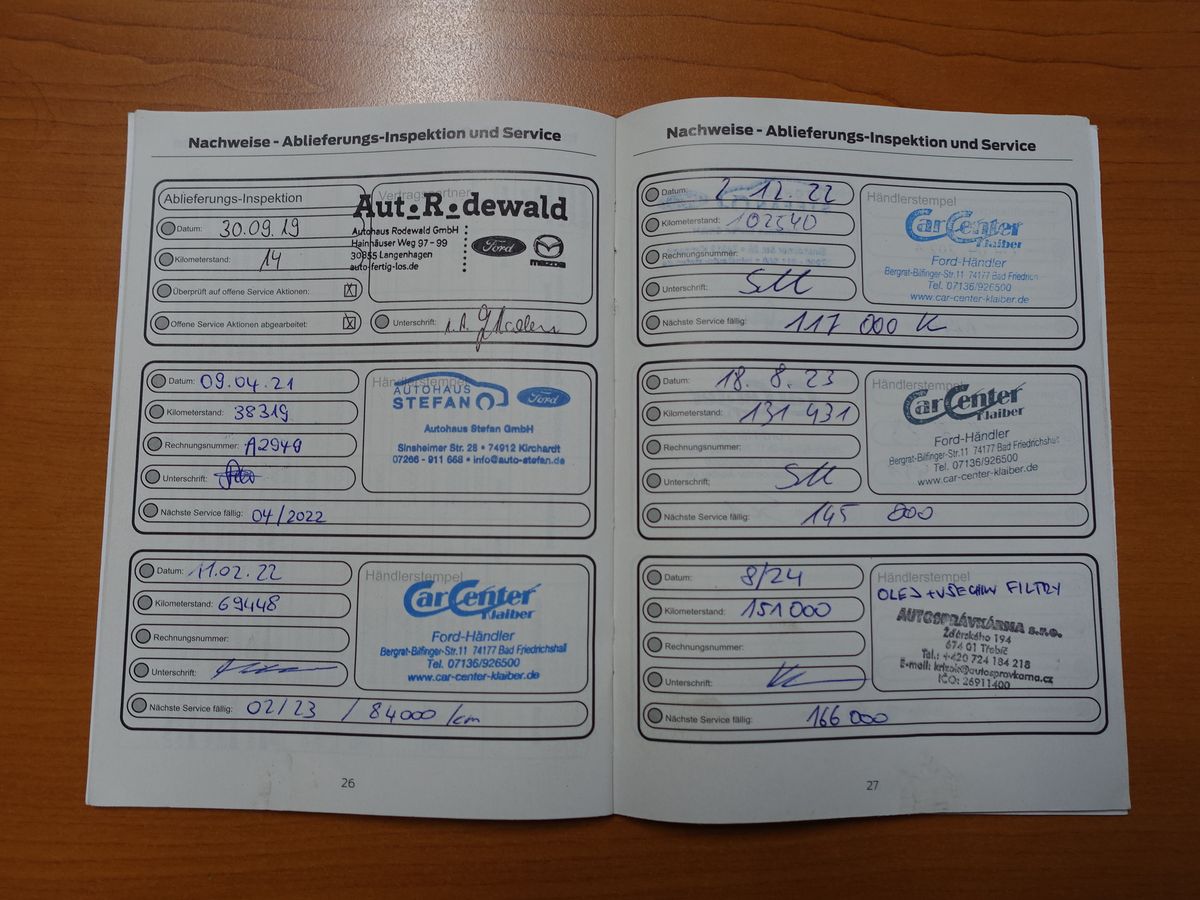 Nachweise - Ablieferungs-Inspektion und Service
Ablieferungs-Inspektion
Datum: 30.09.19
Kilometerstand: 14
Überprüft auf offene Service Aktionen: X
Offene Service Aktionen abgearbeitet: X
Vertragspartner
Aut.R.dewald
Autohaus Rodewald GmbH
Hainhäuser Weg 97 - 99
30855 Langenhagen
auto-fertig-los.de
Ford
mazda
Unterschrift:
Datum: 09.04.21
Kilometerstand: 38319
Rechnungsnummer: A2949
Unterschrift:
Nächste Service fällig: 04/2022
Händlerstempel
AUTOHAUS
STEFAN
Ford
Autohaus Stefan GmbH
Sinsheimer Str. 28 • 74912 Kirchardt
07266 - 911 668 • info@auto-stefan.de
Datum: 11.02.22
Kilometerstand: 69448
Rechnungsnummer:
Unterschrift:
Nächste Service fällig: 02/23 / 84000 /km
Händlerstempel
CarCenter
Klaiber
Ford-Händler
Bergrat-Bilfinger-Str.11 74177 Bad Friedrichshall
Tel. 07136/926500
www.car-center-klaiber.de
26
Nachweise - Ablieferungs-Inspektion und Service
Datum: 2.12.22
Kilometerstand: 102540
Rechnungsnummer:
Unterschrift:
Nächste Service fällig: 117 000 K
Händlerstempel
CarCenter
Klaiber
Ford-Händler
Bergrat-Bilfinger-Str.11 74177 Bad Friedrich
Tel. 07136/926500
www.car-center-klaiber.de
Datum: 18.8.23
Kilometerstand: 131 431
Rechnungsnummer:
Unterschrift:
Nächste Service fällig: 145 800
Händlerstempel
CarCenter
Klaiber
Ford-Händler
Bergrat-Bilfinger-Str.11 74177 Bad Friedrichshall
Tel. 07136/926500
www.car-center-klaiber.de
Datum: 8/24
Kilometerstand: 151000
Rechnungsnummer:
Unterschrift:
Nächste Service fällig: 166 000
Händlerstempel
OLEJ + VŠECHNY FILTRY
AUTOSPRÁVKÁRNA s.r.o.
Žďárského 194
674 01 Třebíč
Tel.: +420 724 184 218
E-mail: @autospravkarna.cz
IČO: 26911400
27